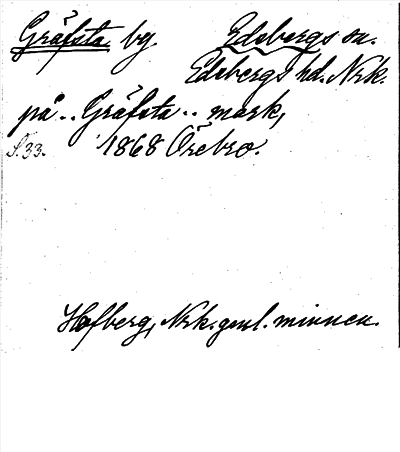 Gräfsta. by. Edsbergs sn.
Edsbergs hd. Nrk.
på .. Gräfsta .. mark,
S. 33. 1868 Örebro.
Hofberg, Nrk. gml. minnen.